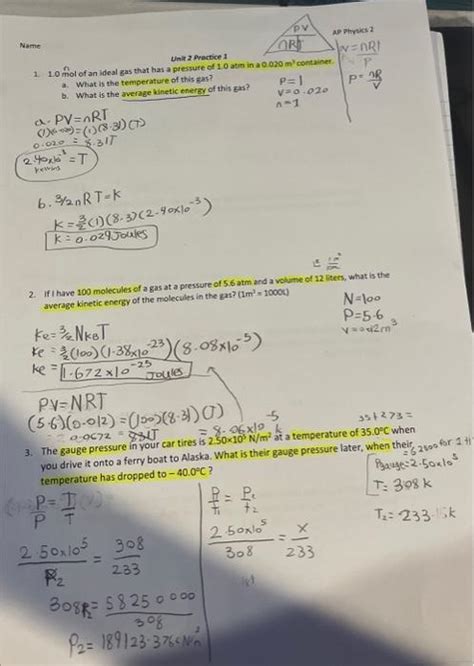 PV
nRT
AP Physics 2
V = nRT
P
P = nR
V
Name
Unit 2 Practice 1
n
1. 1.0 mol of an ideal gas that has a pressure of 1.0 atm in a 0.020 m³ container.
a. What is the temperature of this gas?
b. What is the average kinetic energy of this gas?
P = 1
V = 0.020
n = 1
a. PV = nRT
(1)(0.020) = (1)(8.31)(T)
0.020 = 8.31T
2.40x10⁻³ = T
kelvins
b. 3/2 nRT = K
K = 3/2 (1)(8.3)(2.40x10⁻³)
K = 0.029 Joules
2. If I have 100 molecules of a gas at a pressure of 5.6 atm and a volume of 12 liters, what is the
average kinetic energy of the molecules in the gas? (1m³ = 1000L)
N = 100
P = 5.6
V = 0.012 m³
Ke = 3/2 NKBT
Ke = 3/2 (100)(1.38x10⁻²³)(8.08x10⁻⁵)
Ke = 1.672x10⁻²⁵ Joules
PV = NRT
(5.6)(0.012) = (100)(8.31)(T)
= 0.0672 = 831T = 8.06x10⁻⁵
35+273=
3. The gauge pressure in your car tires is 2.50x10⁵ N/m² at a temperature of 35.0°C when
you drive it onto a ferry boat to Alaska. What is their gauge pressure later, when their
temperature has dropped to – 40.0°C ?
Pgauge = 2.50x10⁵
T = 308 K
T₂ = 233.15 K
P = T
P T
P = P₂
t₁ t₂
2.50x10⁵ = 308
P₂ 233
2.50x10⁵ = x
308 233
308P₂ = 58250000
308
P₂ = 189123.376 N/m²